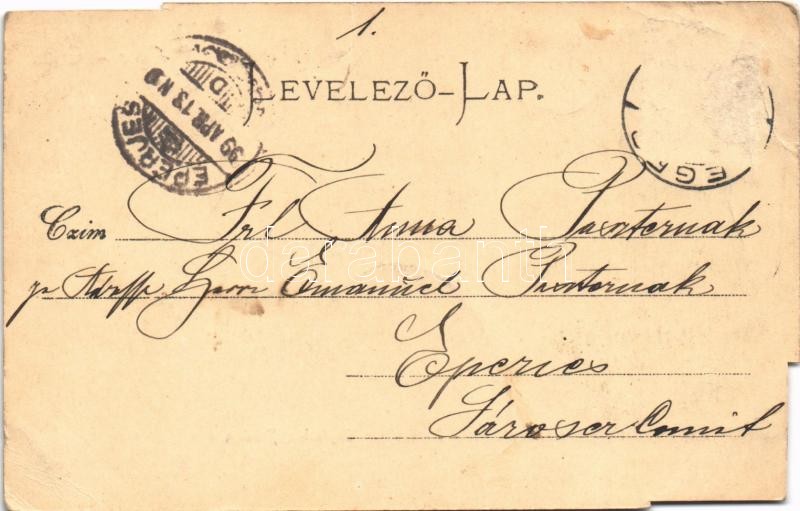 1.
LEVELEZŐ-LAP.
EPERJES
99 APR. 13 N
D
EG
Czim Frl. Anna Paszternak
pr Adresse Herrn Emanuel Paszternak
Eperies
Sároser Comit
darabanth